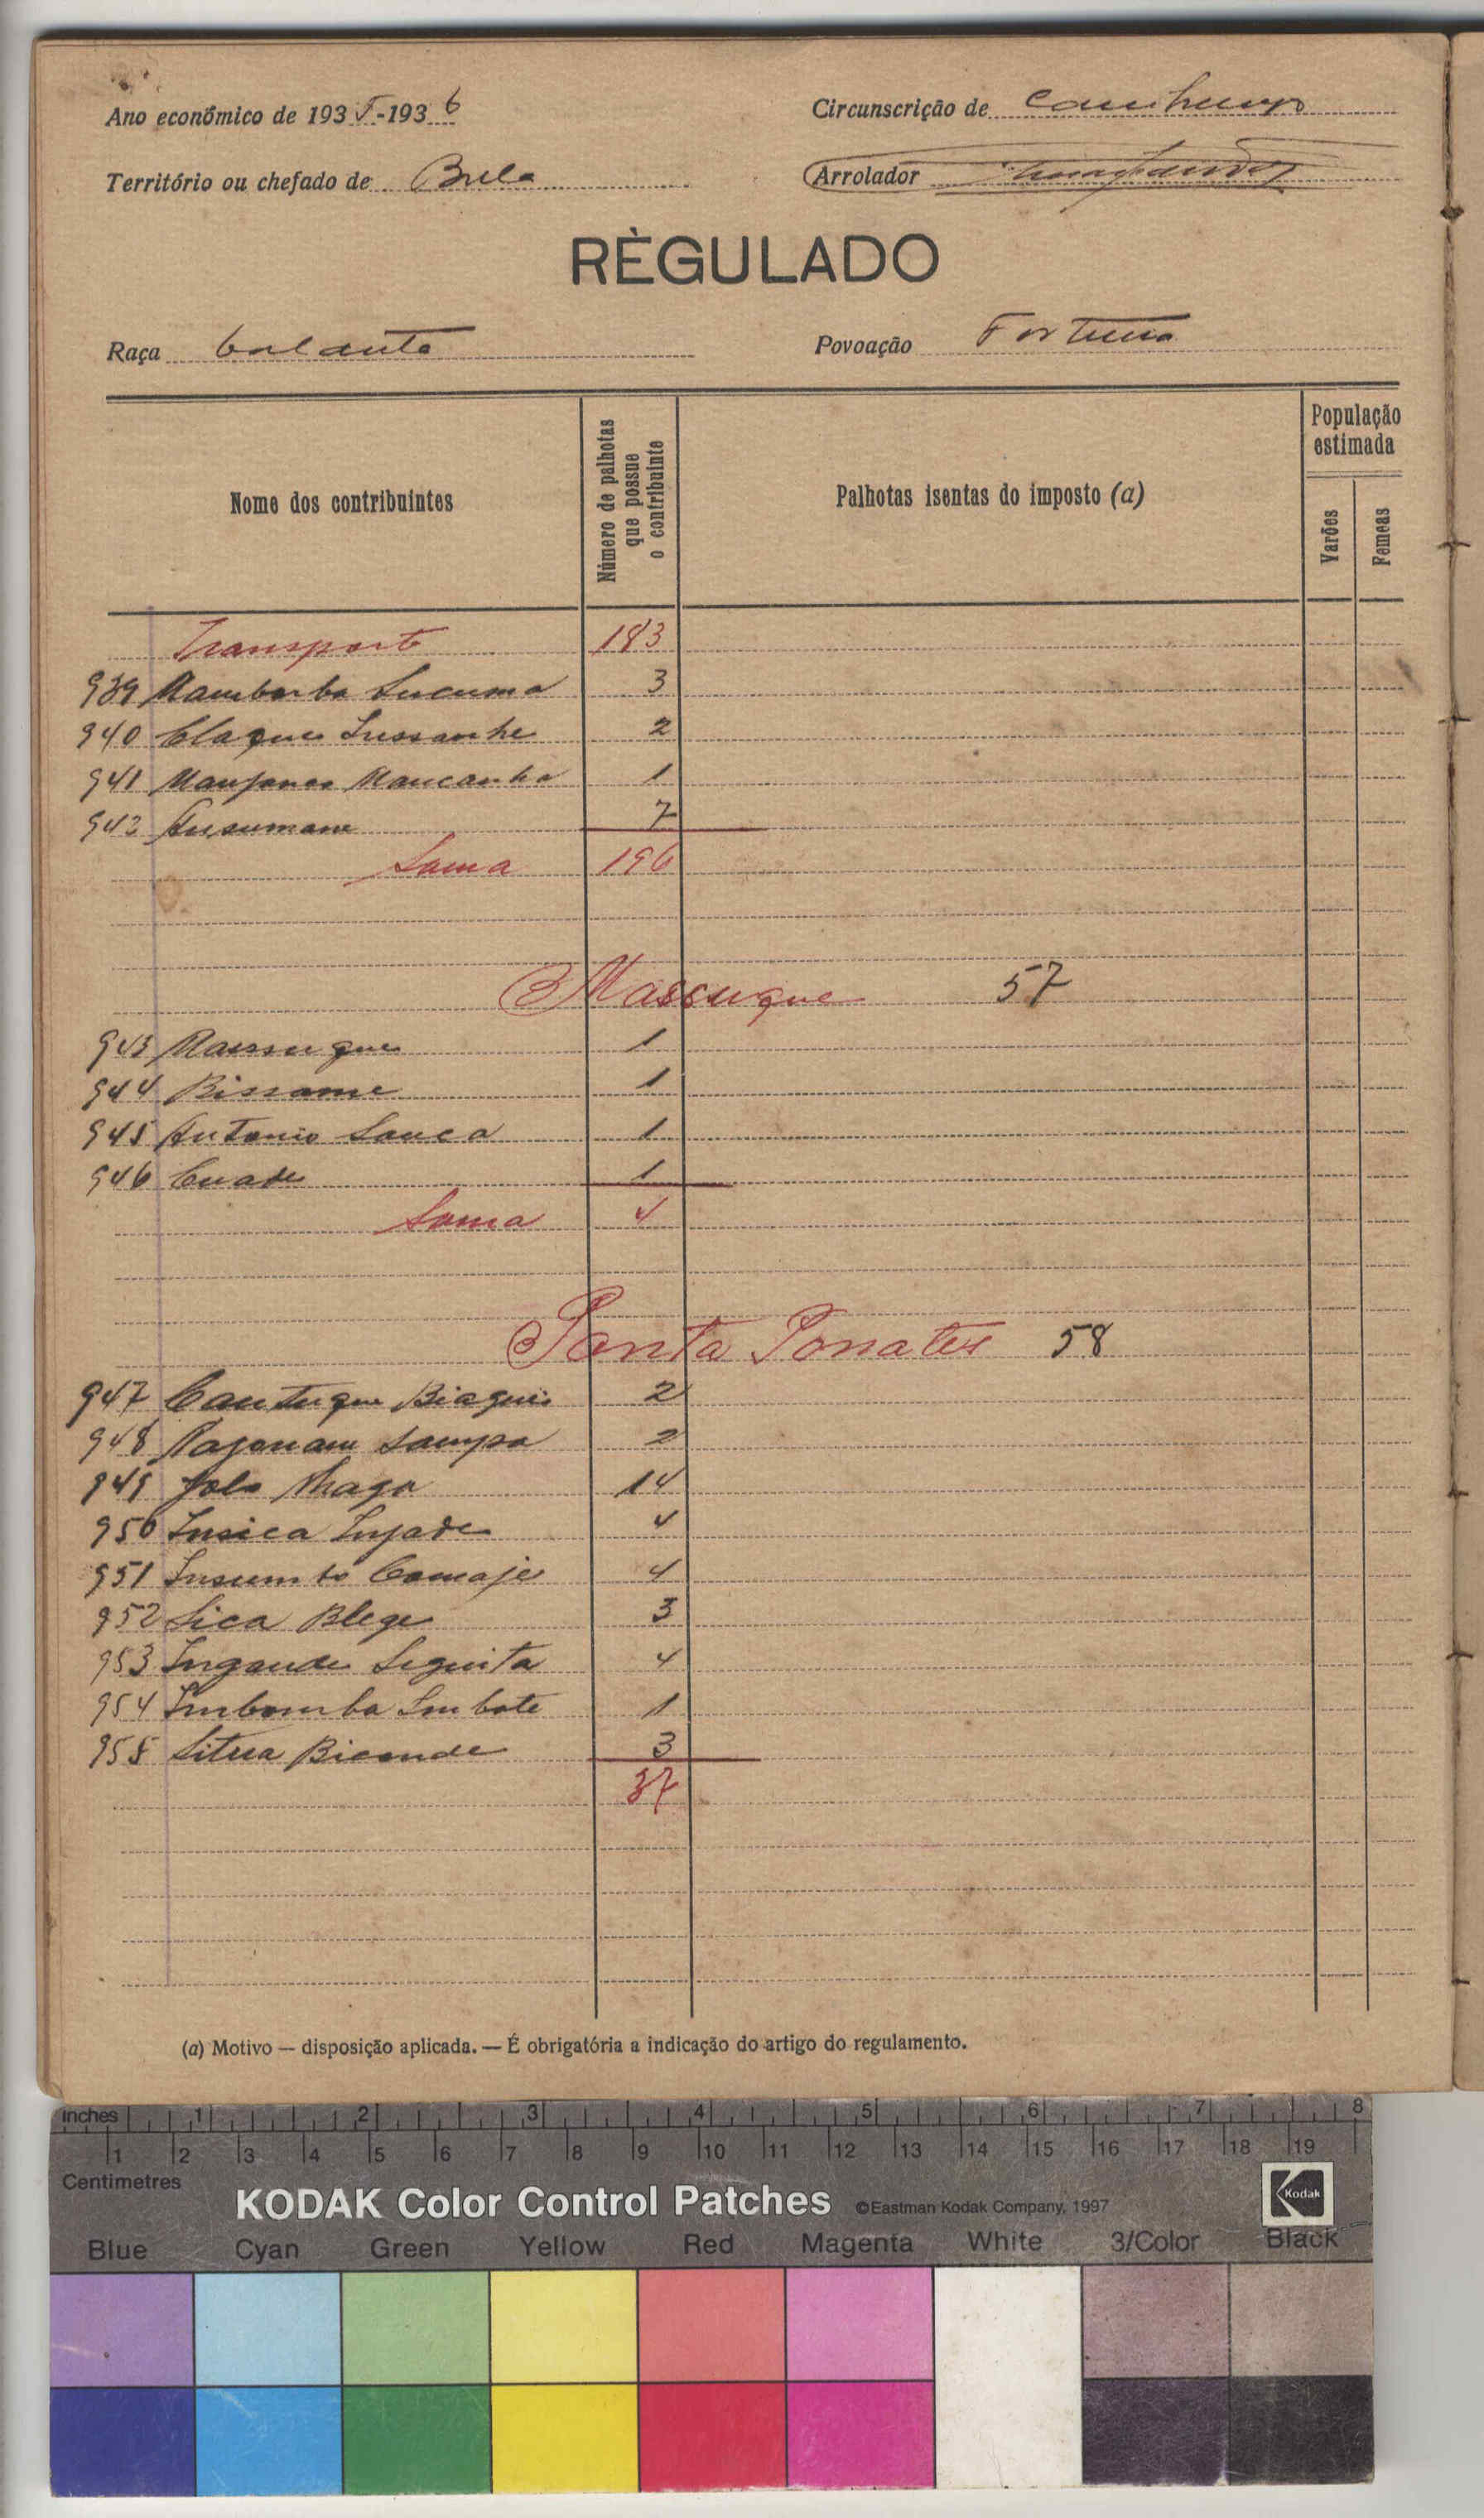 Ano econômico de 1935-1936
Circunscrição de Canhungo
Território ou chefado de Bula
Arrolador
RÈGULADO
Raça balanta
Povoação Fortuna
Nome dos contribuintes
Número de palhotas que possue o contribuinte
Palhotas isentas do imposto (a)
População estimada
Varões
Femeas
Transporte 183
939 Mambarba Sucuma 3
940 Claque Inssanhe 2
941 Mancanha 1
942 Ansumane 7
Soma 196
Massuque 57
943 Massuque 1
944 Bissame 1
945 Antonio Sanca 1
946 Cuade 1
Soma 4
Panta Ponates 58
947 Cantuque Biague 2
948 Sampa 2
949 João Thago 14
950 Insica Injade 4
951 4
952 Sica Blege 3
953 Ingande Seguita 4
954 Imbomba Imbate 1
955 Situa Biconde 3
37
(a) Motivo — disposição aplicada. — É obrigatória a indicação do artigo do regulamento.
inches 1 2 3 4 5 6 7 8
1 2 3 4 5 6 7 8 9 10 11 12 13 14 15 16 17 18 19
Centimetres
KODAK Color Control Patches ©Eastman Kodak Company, 1997 Kodak
Blue Cyan Green Yellow Red Magenta White 3/Color Black